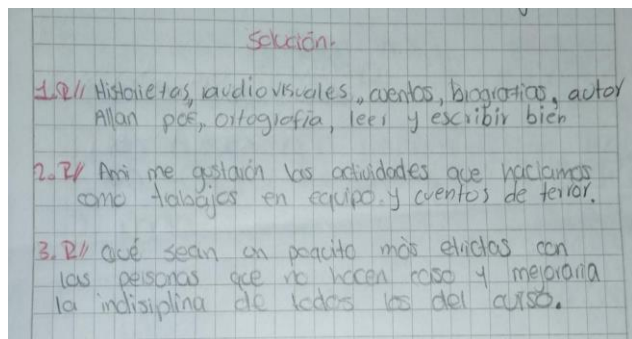 Solución.
1.R// Historietas, audiovisuales, cuentos, biografias, autor
Allan poe, ortografia, leer y escribir bien
2.R/ Ami me gustaron las actividades que haciamos
como trabajos en equipo y cuentos de terror.
3.R// qué sean un poquito más estrictas con
las personas que no hacen caso y mejoraria
la indisiplina de todos los del curso.